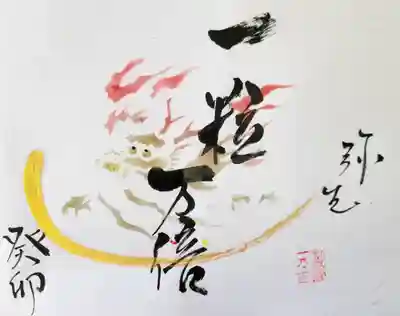 一粒万倍
弥生
癸卯